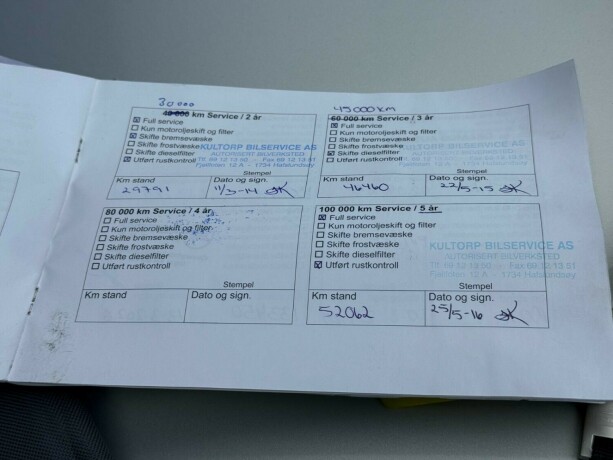 30 000
40 000 km Service / 2 år
Full service
Kun motoroljeskift og filter
Skifte bremsevæske
Skifte frostvæske
Skifte dieselfilter
Utført rustkontroll
KULTORP BILSERVICE AS
AUTORISERT BILVERKSTED
Tlf. 69 12 13 50 - Fax 69 12 13 51
Fjellveien 12 A - 1734 Hafslundsøy
Stempel
Km stand
Dato og sign.
29791
45000 KM
60 000 km Service / 3 år
Full service
Kun motoroljeskift og filter
Skifte bremsevæske
Skifte frostvæske
Skifte dieselfilter
Utført rustkontroll
KULTORP BILSERVICE AS
Stempel
Km stand
Dato og sign.
46460
22/5-15
80 000 km Service / 4 år
Full service
Kun motoroljeskift og filter
Skifte bremsevæske
Skifte frostvæske
Skifte dieselfilter
Utført rustkontroll
Stempel
Km stand
Dato og sign.
100 000 km Service / 5 år
Full service
Kun motoroljeskift og filter
Skifte bremsevæske
Skifte frostvæske
Skifte dieselfilter
Utført rustkontroll
KULTORP BILSERVICE AS
AUTORISERT BILVERKSTED
Stempel
Km stand
Dato og sign.
52062
25/5-16